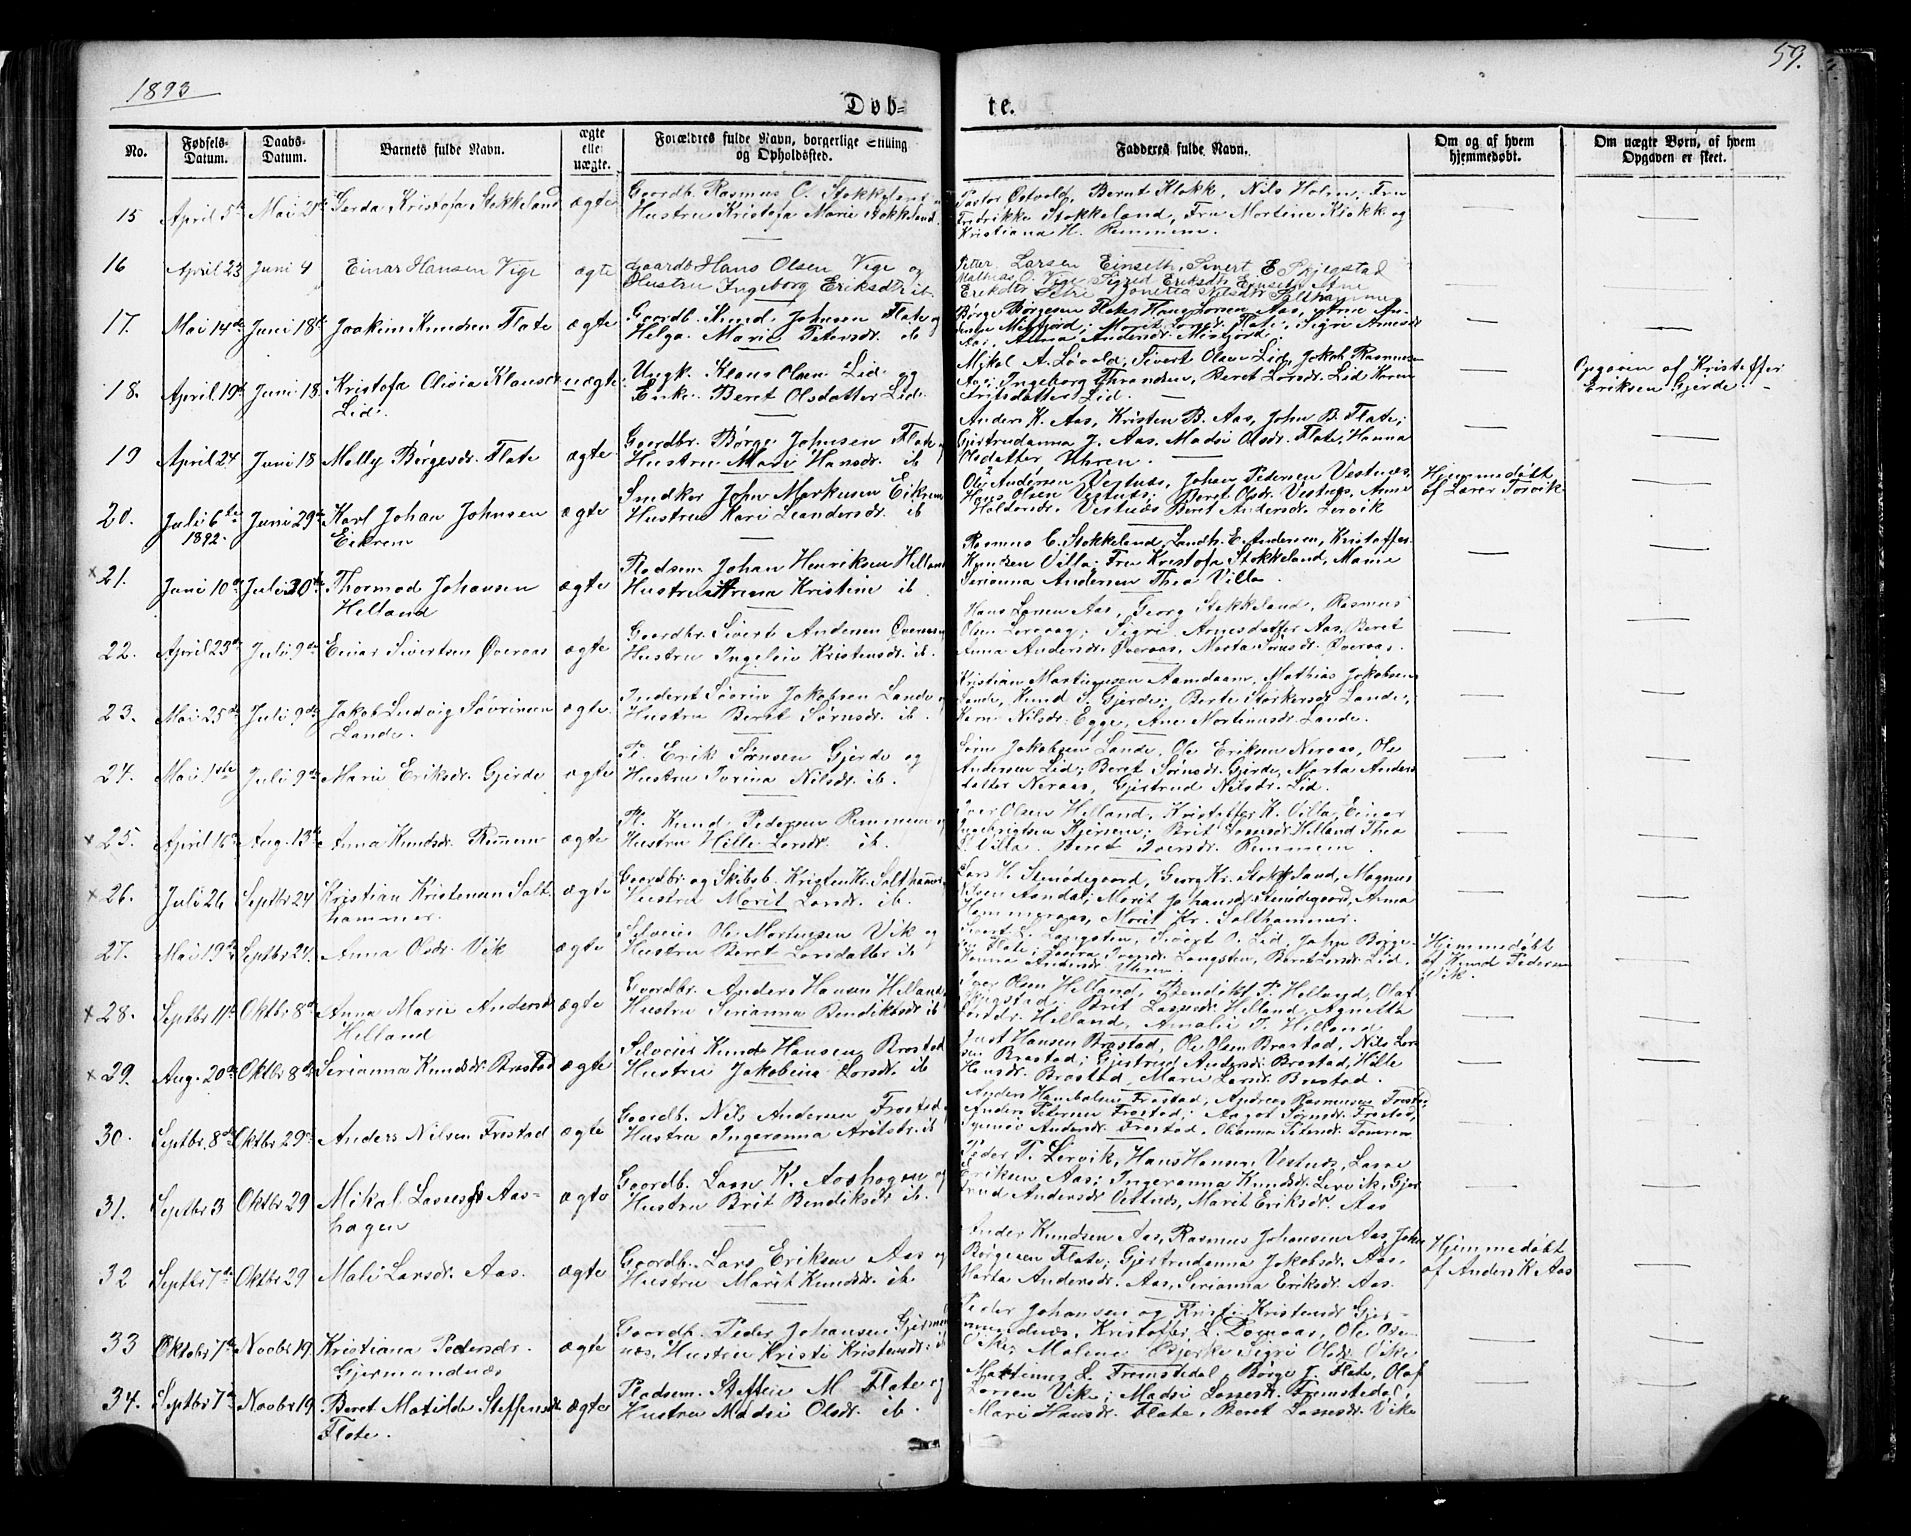 1893
59.
Døb=
te.
No.
Fødsels-
Datum.
Daabs-
Datum.
Barnets fulde Navn.
ægte
eller
uægte.
Forældres fulde Navn, borgerlige Stilling
og Opholdssted.
Fadderes fulde Navn.
Om og af hvem
hjemmedøbt.
Om uægte Børn, af hvem
Opgaven er skeet.
15 April 5te Mai 21de Gerda Kristofa Stokkeland ægte Gaardb. Rasmus C. Stokkeland
Hustru Kristofa Marie Stokkeland
Pastor Østvold, Bernt Klokk, Nils Holm, Fru
Fredrikke Stokkeland, Fru Martine Klokk og
Kristiana H. Remmem.
16 April 23 Juni 4 Einar Hansen Vige ægte Gaardb Hans Olsen Vige og
Hustru Ingeborg Eriksdr ib.
Petter Larsen Einseth, Sivert E
Mathias O. Vige Sigrid Eriksdr Einseth Ane
Jonetta Nilsdr Salthammer
17. Mai 14de Juni 18de Joakim Knudsen Flate ægte Gaardb. Knud Johnsen Flate og
Helga Marie Petersdr. ib
Børge Børgesen Flate, Hans Larsen Aas,
Misfjord; Marit Larsdr. Flate, Sigri Arnesdr
Aas, Anna Andersdr Misfjord.
18. April 19de Juni 18 Kristofa Olivia Klausdr
Lid.
uægte Ungk. Klaus Olsen Lid og
Enke Beret Olsdatter Lid.
Mikal A. Løvold, Sivert Olsen Lid, Jakob Rasmussen
Aas; Ingeborg Thrandsen, Beret Larsdr. Lid Karen
Fritsdatter Lid.
Opgaven af Kristoffer
Eriksen Gjerde.
19 April 24 Juni 18 Molly Børgesdr. Flate ægte Gaardbr. Børge Johnsen Flate og
Hustru Mari Hansdr. ib
Anders K. Aas, Kristen B. Aas, John B. Flate;
Gjertrudanna J. Aas, Madsi Olsdr. Flate, Hanna
Olsdatter Uhren.
20. Juli 6te
1892.
Juni 29de Karl Johan Johnsen
Eikrem
ægte Snedker John Markusen Eikrem
Hustru Kari Leandersdr. ib
Ole Andersen Vestnæs, Johan Pedersen Vestnæs
Hans Olsen Vestnæs; Beret Olsdr. Vestnæs, Anne
Vestnæs Beret Andersdr. Lervik
Hjemmedøbt
af Lærer Torvik
x 21. Juni 10de Juli 30te Thormod Johansen
Helland
ægte Pladsem. Johan Henriksen Helland
Hustru Anna Kristine ib.
Rasmus C. Stokkeland, Landh. E. Andersen, Kristoffer
Knudsen Villa; Fru Kristofa Stokkeland, Mamie
Serianna Andersen Thea Villa.
22. April 23de Juli 9de Einar Sivertsen Øveraas ægte Gaardbr. Sivert Andersen Øveraas
Hustru Ingeleiv Kristensdr. ib.
Hans Larsen Aas, Georg Stokkeland, Rasmus
Olsen Lervaag; Sigri Arnesdatter Aas, Beret
Anna Andersdr. Øveraas, Marta Sørnsdr. Øveraas.
23. Mai 25de Juli 9de Jakob Ludvig Søvrinsen
Lande.
ægte Inderst Søvrin Jakobsen Lande og
Hustru Beret Sørnsdr. ib.
Kristian Martinussen Aamdaam, Mathias Jakobsen
Lande, Knud S. Gjerde; Berte Størkersdr Lande;
Karn Nilsdr. Egge, Ane Mortinusdr. Lande.
24. Mai 1ste Juli 9de Marie Eriksdr. Gjerde ægte Pl. Erik Sørnsen Gjerde og
Hustru Jorina Nilsdr. ib.
Sørn Jakobsen Lande, Ole Eriksen Neraas, Ole
Andersen Lid; Beret Sørnsdr. Gjerde, Marta Anders
datter Neraas, Gjertrud Nilsdr. Lid.
x 25. April 16de Aug. 13de Anna Knudsdr. Remmem ægte Pl. Knud Pedersen Remmem og
Hustru Hille Larsdr. ib.
Iver Olsen Helland, Kristoffer K. Villa, Einar
Ingebrigtsen Kjersem; Brit Lassesdr. Helland Thea
Villa. Beret Iversdr. Remmem.
x 26. Juli 26 Septbr 24 Kristian Kristensen Salt
hammer.
ægte Gaardbr. og Skibsb. Kristen Kr. Salthammer
Hustru Marit Larsdr. ib.
Lars H. Stenødegaard, Georg Kr. Stokkeland, Magnus
Nilsen Aandal; Marit Johansdr Stenødegaard, Anna
Hammeraas, Marit Kr. Salthammer.
27. Mai 19de Septbr 24. Anna Olsdr. Vik ægte Selveier Ole Mortensen Vik og
Hustru Beret Larsdatter ib
Sivert L. Langsten, Sivert O. Lid, John Børge
sen Flate; Langsten, Beret Larsdr. Lid.
Hanna Andersdr. Uhren.
Hjemmedøbt
af Knud Pedersen
Vik.
x 28. Septbr 11te Oktbr 8de Anna Marie Andersdr
Helland
ægte Gaardbr. Anders Hansen Helland
Hustru Serianna Bendiktsdr ib
Iver Olsen Helland, Bendikt P. Helland, Olaf
Brit Lassesdr Helland, Agnetta
Helland, Amalie P. Helland
x 29. Aug. 20de Oktbr 8de Serianna Knudsdr. Brastad ægte Selveier Knud Hansen Brastad
Hustru Jakobina Larsdr. ib
Just Hansen Brastad, Ole Olsen Brastad, Nils Lar
sen Brastad; Gjertrud Andersdr. Brastad, Hille
Hansdr. Brastad, Marie Larsdr. Brastad.
30. Septbr. 8de Oktbr 29de Anders Nilsen Frostad ægte Gaardb. Nils Andersen Frostad
Hustru Ingeranna Arilsdr. ib
Anders Frostad, Andreas Rasmussen Frostad
Anders Petersen Frostad; Aagot Sørnsdr. Frostad
Synnøv Andersdr. Frostad, Olianna Petersdr. Tomren
31. Septbr 3 Oktbr 29 Mikal Lassesøn Aas-
hagen
ægte Gaardb. Lasse K. Aashagen og
Hustru Brit Bendiksdr ib.
Peder P. Lervik, Hans Hansen Vestnæs, Lasse
Eriksen Aas; Ingeranna Knudsdr. Lervik, Gjer
trud Andersdr Vestnæs, Marit Eriksdr. Aas
32 Septbr 7de Oktbr 29 Mali Larsdr. Aas. ægte Gaardb. Lars Eriksen Aas og
Hustru Marit Knudsdr. ib.
Anders Knudsen Aas, Rasmus Johansen Aas, John
Børgesen Flate; Gjertrudanna Jakobsdr. Aas,
Marta Andersdr. Aas, Serianna Eriksdr. Aas.
Hjemmedøbt
af Anders K. Aas
33 Oktober 7de Novbr 19 Kristiana Pedersdr.
Gjermundnæs
ægte Gaardb. Peder Johansen Gjermund
næs, Hustru Kristi Kristensdr. ib
Peder Johansen og Kristi Kristensdr Gjer-
mundnæs, Kristoffer L. Dorraas, Ole Ose
Vike; Malene Bjerke Sigri Olsdr. Vike
34. Septbr 7de Novbr 19 Beret Matilde Steffensdr
Flate.
ægte Pladsem. Steffen M Flate og
Hustru Madsi Olsdr. ib.
Martinus L. Fremstedal, Børge J. Flate, Olaf
Larsen Vike; Madsi Lassesdr. Fremstedal,
Mari Hansdr. Flate, Beret Lassesdr. Vike